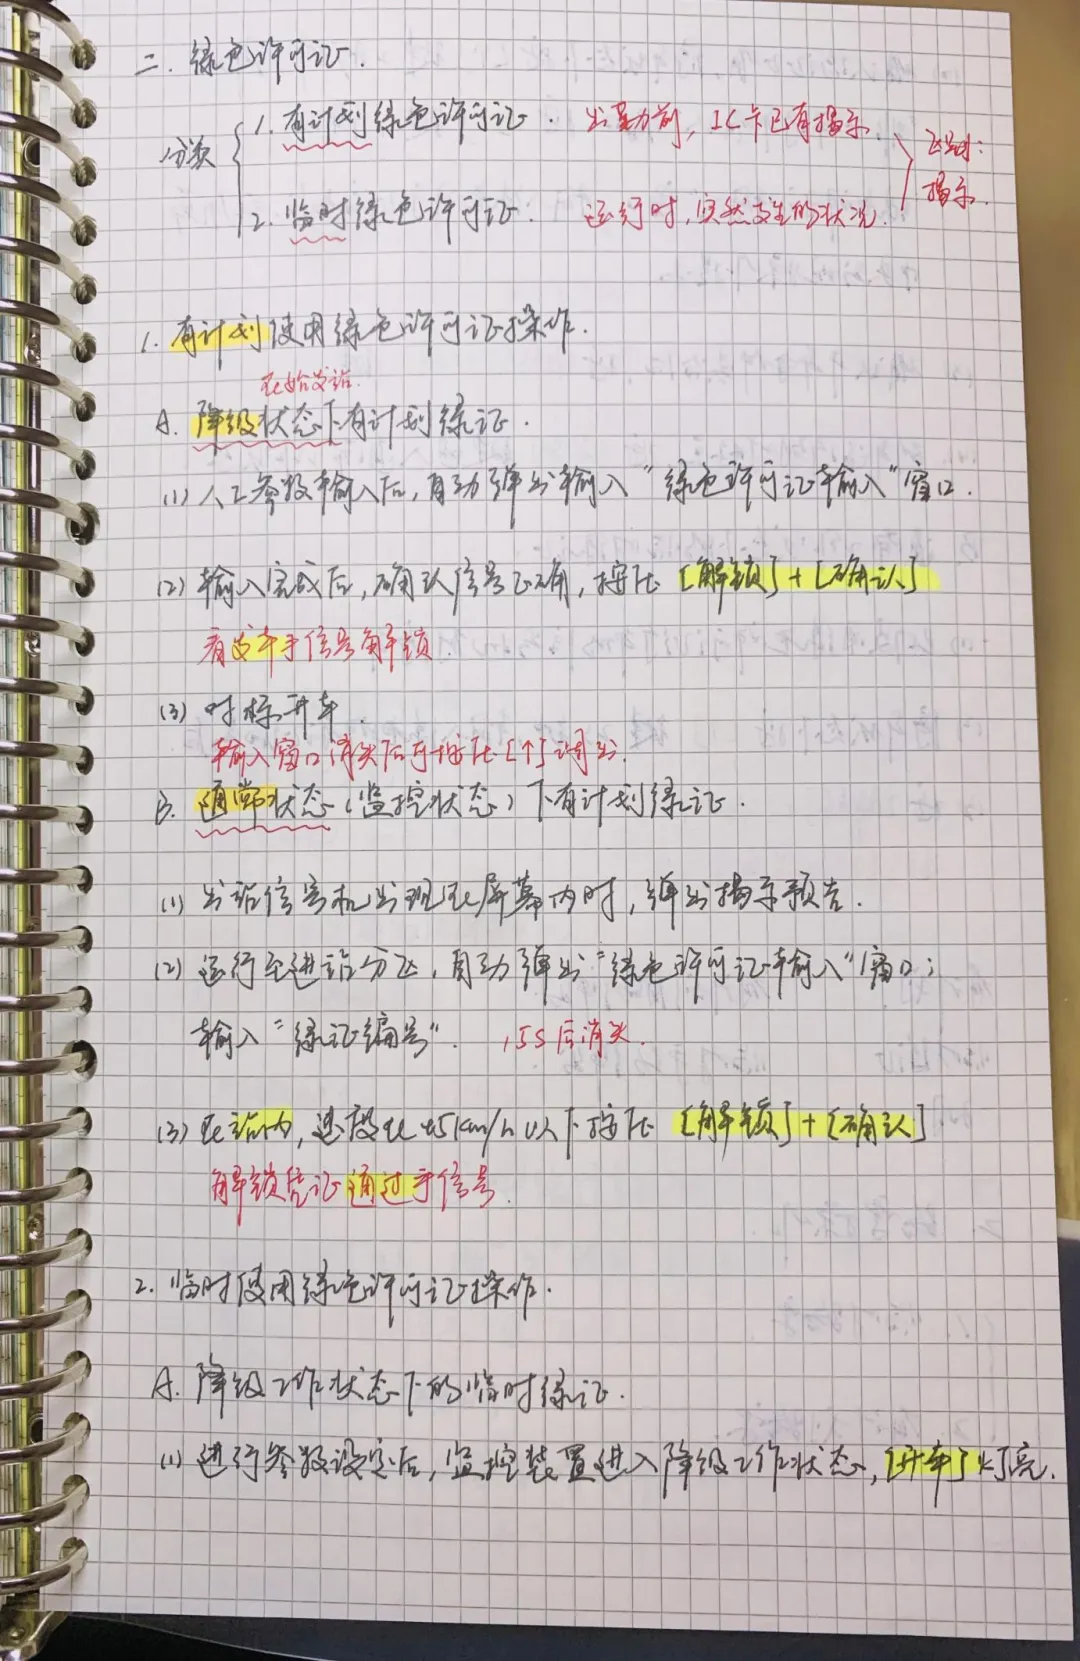 二. 绿色许可证.
分类
1. 有计划绿色许可证. 出勤前, IC卡已有揭示.
2. 临时绿色许可证. 运行时, 突然发生的状况.
区别:
揭示.
1. 有计划使用绿色许可证操作.
在始发站.
A. 降级状态下有计划绿证.
(1) 人工参数输入后, 自动弹出输入“绿色许可证输入”窗口.
(2) 输入完成后, 确认信号正确, 按压 [解锁]+[确认]
看发车手信号解锁.
(3) 对标开车.
输入窗口消失后可按压[↑]调出.
B. 通常状态(监控状态)下有计划绿证.
(1) 出站信号机出现在屏幕内时, 弹出揭示预告.
(2) 运行至进站分区, 自动弹出“绿色许可证输入”窗口;
输入“绿证编号”. 15S后消失.
(3) 在站内, 速度在45km/h以下按压 [解锁]+[确认]
解锁凭证通过手信号.
2. 临时使用绿色许可证操作.
A. 降级工作状态下的临时绿证.
(1) 进行参数设定后, 监控装置进入降级工作状态, [开车]灯亮.